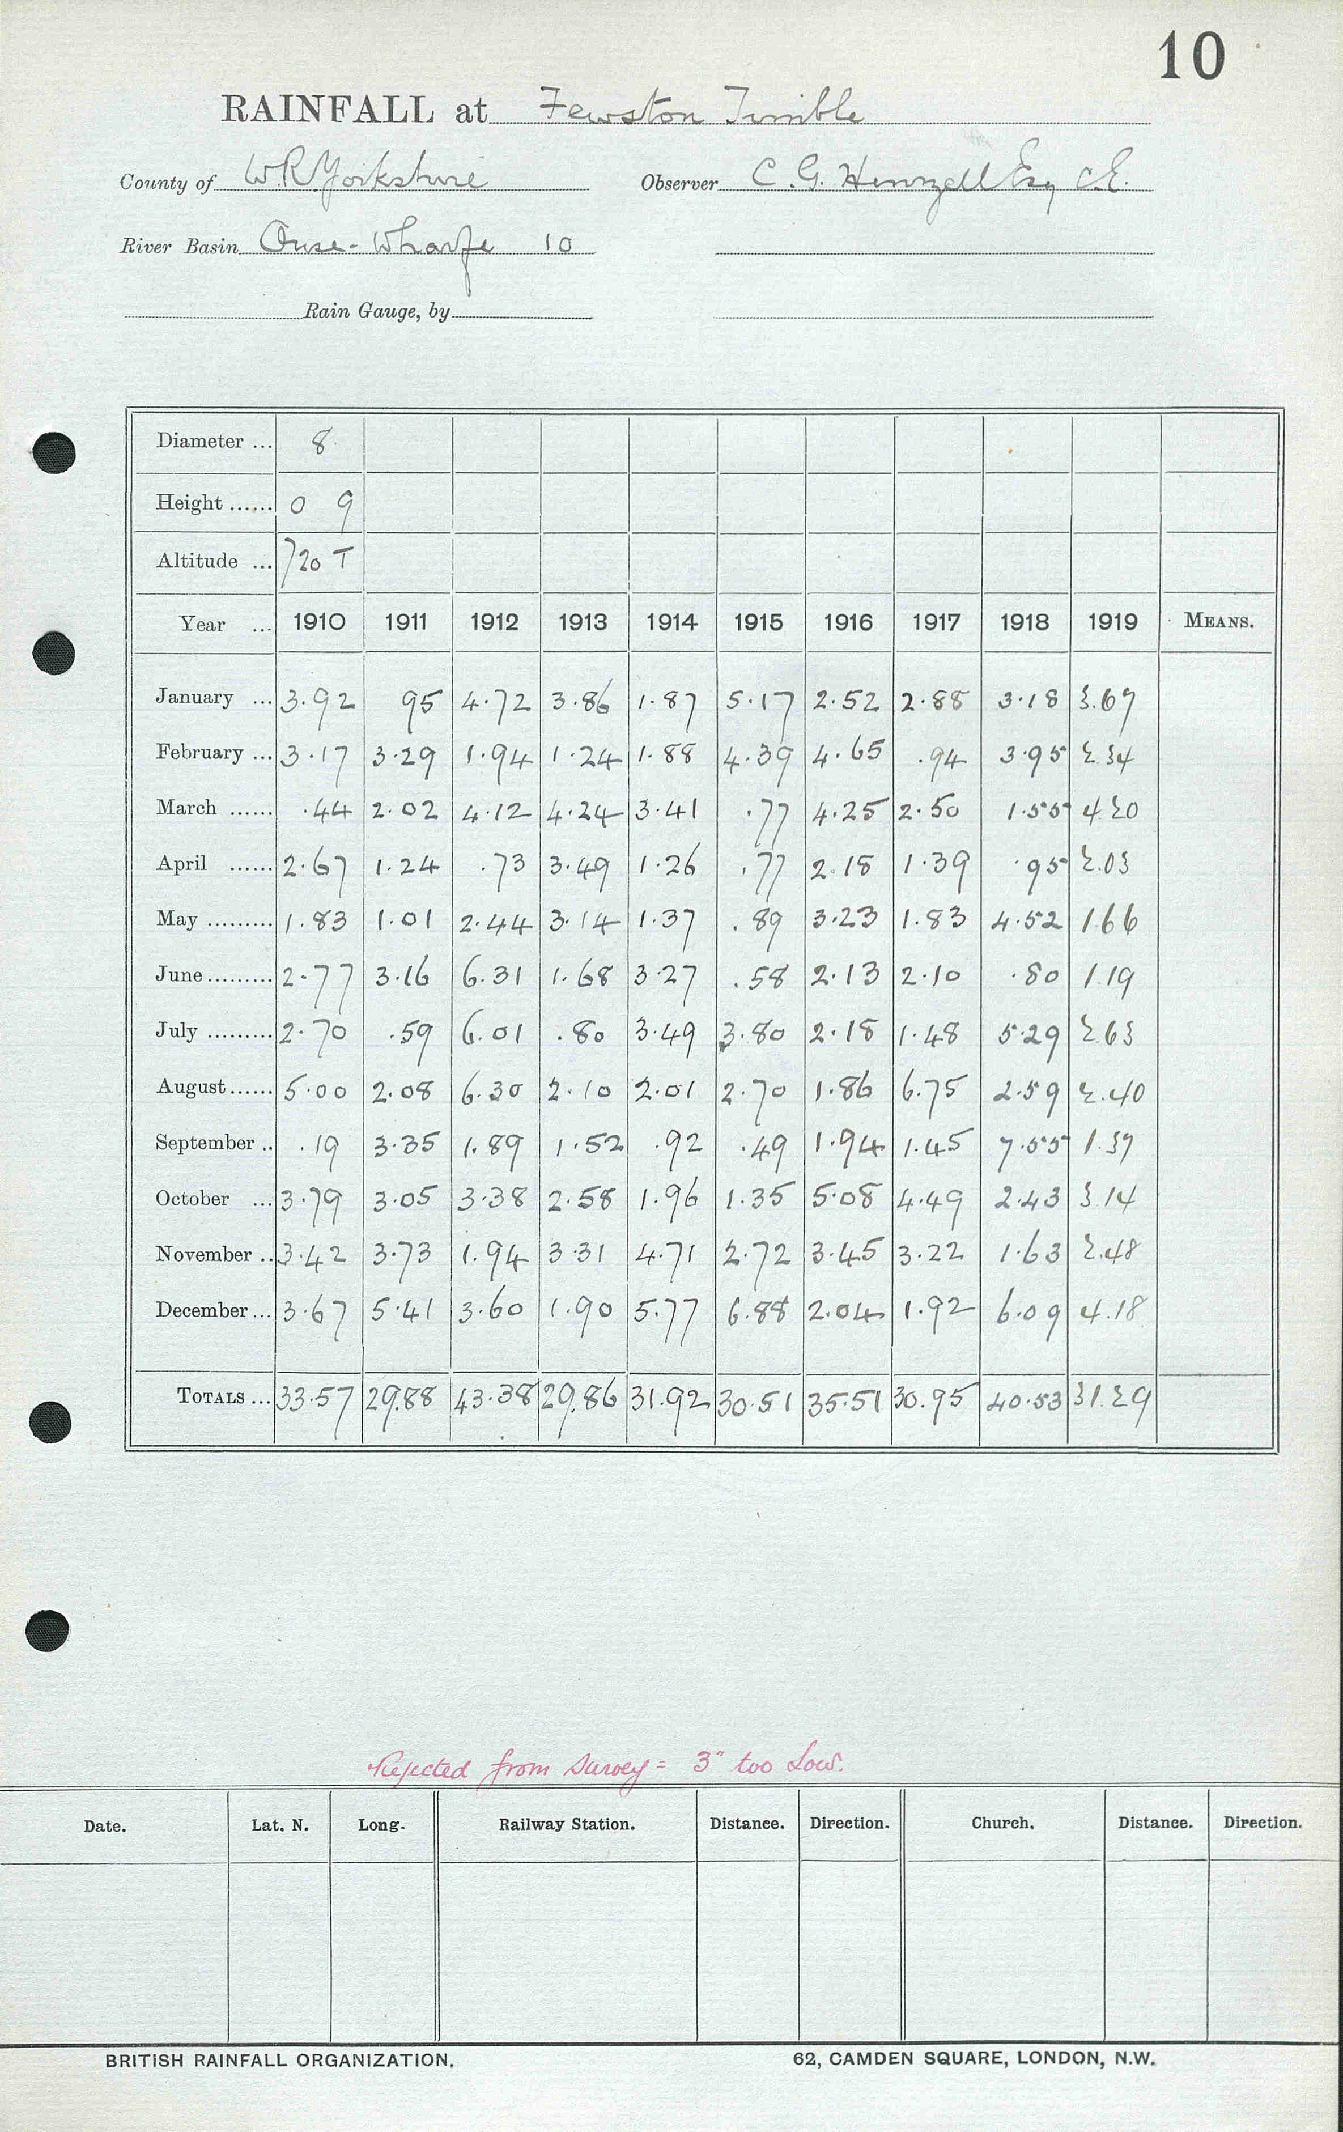 10
RAINFALL at Fewston Timble
County of W.R. Yorkshire Observer C. G. Henzell Esq C.E.
River Basin Ouse-Wharfe 10
Rain Gauge, by
Diameter ... 8
Height ...... 0 9
Altitude ... 720 T
Year ... 1910 1911 1912 1913 1914 1915 1916 1917 1918 1919 MEANS.
January ... 3.92 95 4.72 3.86 1.87 5.17 2.52 2.88 3.18 3.67
February ... 3.17 3.29 1.94 1.24 1.88 4.39 4.65 .94 3.95 2.34
March ...... .44 2.02 4.12 4.24 3.41 .77 4.25 2.50 1.55 4.20
April ...... 2.67 1.24 .73 3.49 1.26 .77 2.18 1.39 .95 2.03
May ......... 1.83 1.01 2.44 3.14 1.37 .89 3.23 1.83 4.52 1.66
June ......... 2.77 3.16 6.31 1.68 3.27 .58 2.13 2.10 .80 1.19
July ......... 2.70 .59 6.01 .80 3.49 3.80 2.18 1.48 5.29 2.63
August...... 5.00 2.08 6.30 2.10 2.01 2.70 1.86 6.75 2.59 2.40
September .. .19 3.35 1.89 1.52 .92 .49 1.94 1.45 7.55 1.37
October ... 3.79 3.05 3.38 2.58 1.96 1.35 5.08 4.49 2.43 3.14
November .. 3.42 3.73 1.94 3.31 4.71 2.72 3.45 3.22 1.63 2.48
December ... 3.67 5.41 3.60 1.90 5.77 6.88 2.04 1.92 6.09 4.18
TOTALS ... 33.57 29.88 43.38 29.86 31.92 30.51 35.51 30.95 40.53 31.29
Rejected from Survey = 3" too Low.
Date. Lat. N. Long. Railway Station. Distance. Direction. Church. Distance. Direction.
BRITISH RAINFALL ORGANIZATION. 62, CAMDEN SQUARE, LONDON, N.W.